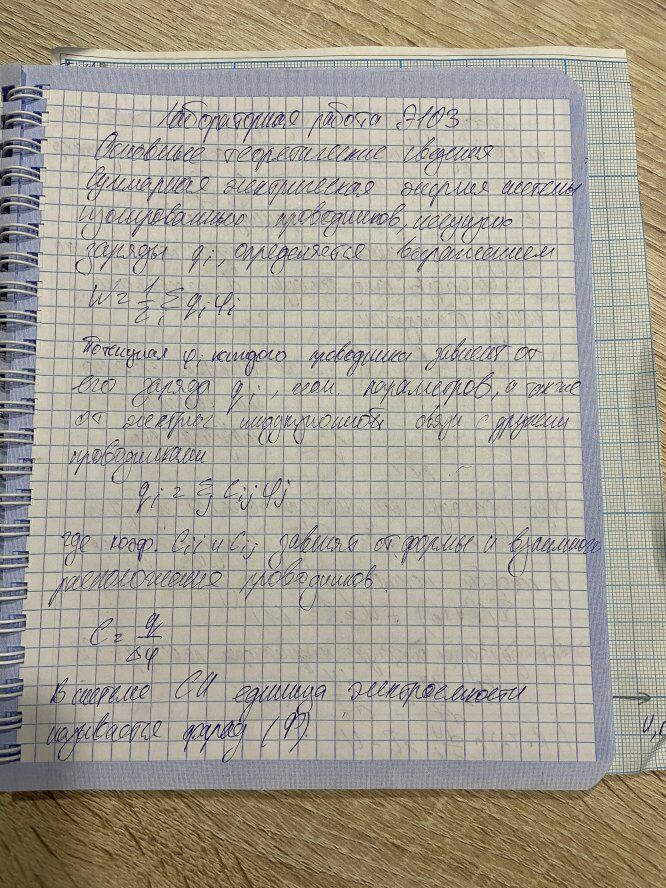 Лабораторная работа Э103
Основные теоретические сведения
Суммарная электрическая энергия системы
изолированных проводников, несущих
заряды qi, определяется выражением
W = 1/2 Σi qi φi
Потенциал φi каждого проводника зависит от
его заряда qi, геом. параметров, а также
от электрос. индукционной связи с другими
проводниками
qi = Σj Cij φj
где коэф. Cij и Cij зависят от формы и взаимного
расположение проводников
C = q/Δφ
В системе СИ единица электроемкости
называется фарад (Ф)